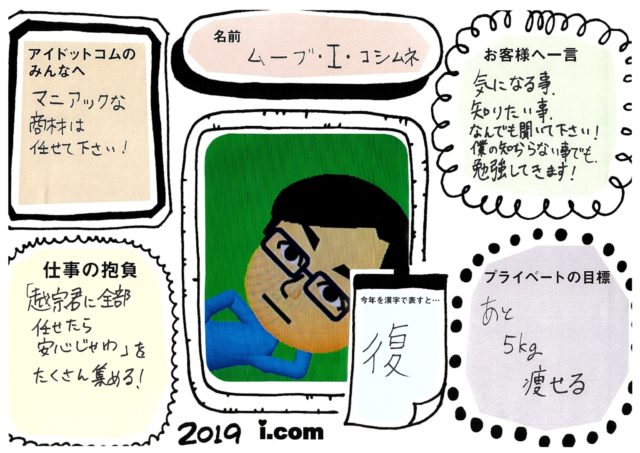 アイドットコムの
みんなへ
マニアックな
商材は
任せて下さい!
名前
ムーブ・I・コシムネ
お客様へ一言
気になる事、
知りたい事、
なんでも聞いて下さい!
僕の知らない事でも、
勉強してきます!
仕事の抱負
「越宗君に全部
任せたら
安心じゃわ」を
たくさん集める!
今年を漢字で表すと…
復
プライベートの目標
あと
5kg
痩せる
2019 i.com